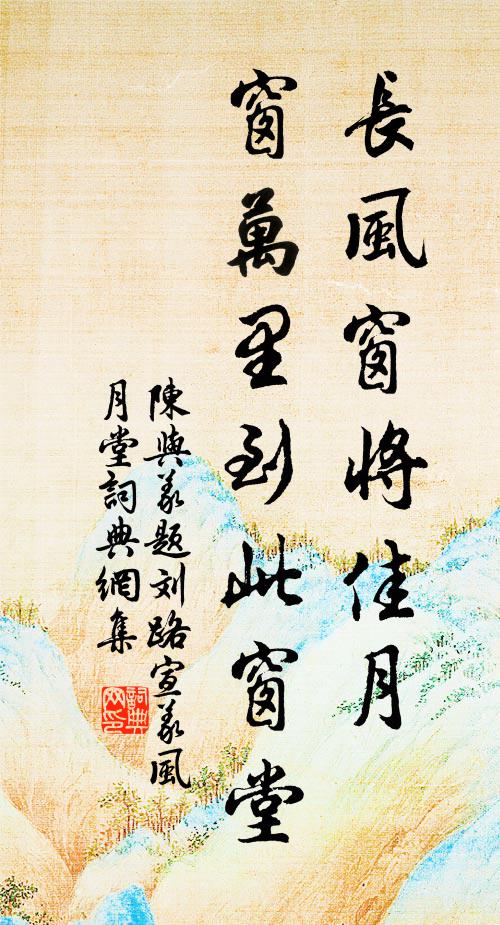 長風窗將佳月
窗萬里到此窗堂
陳與義題刘路宣義風
月堂詞典網集
詞典网印